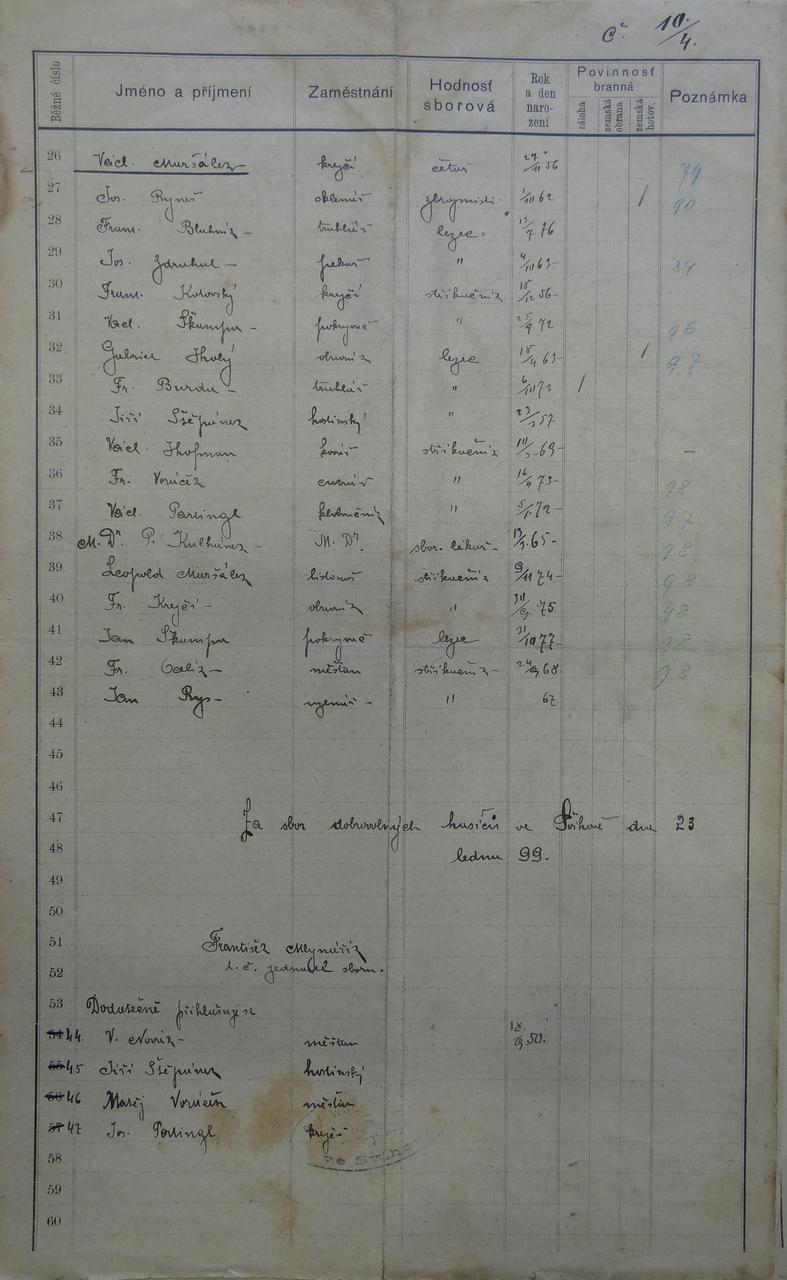 č. 10./4.
Běžné číslo Jméno a příjmení Zaměstnání Hodnosť sborová Rok a den narození Povinnosť branná záloha zemská obrana zemská hotov. Poznámka
26 Václ. Maršálek krejčí četař 27/11 56 79
27 Jos. Ryneš 1/10 62 / 90
28 Frant. truhlář lezec. 13/7 76
29 Jos. Zdrubal — pekař " 4/10 63 – 84
30 Frant. Kotovský krejčí stříkačník 18/12 56 –
31 Václ. Škumpa – pokrývač " 25/9 72 96
32 Gabriel Tholý obuvník lezec 18/4 63 – / 97
33 Fr. Burda – truhlář " 6/10 72 /
34 Jiří Štěpánek hostinský " 57
35 Václ. Hofman stříkačník 69 – –
36 Fr. Voráček " 16/4 73 – 98
37 Václ. Partingl klobučník " 5/1 72 – 97
38 M. Dr. P. Kulhánek – M. Dr. sbor. lékař – 65 – 98
39 Leopold Maršálek listonoš stříkačník 9/11 74 – 98
40 Fr. Krejčí – obuvník " 75 98
41 Jan Škumpa pokrývač lezec 31/10 77 – 98
42 Fr. měšťan stříkačník – 24/9 68. 98
43 Jan Rys – " 67
44
45
46
47 Za sbor dobrovolných hasičů ve dne 23
48 ledna 99.
49
50
51 František Mlynařík
52 t. č. jednatel sboru.
53 Dodatečně přihlašuje se
54 44. V. Novák – měšťan 18./9. 50.
55 45 Jiří Štěpánek hostinský
56 46 Matěj měšťan
57 47 Jos. Partingl krejčí
58
59
60